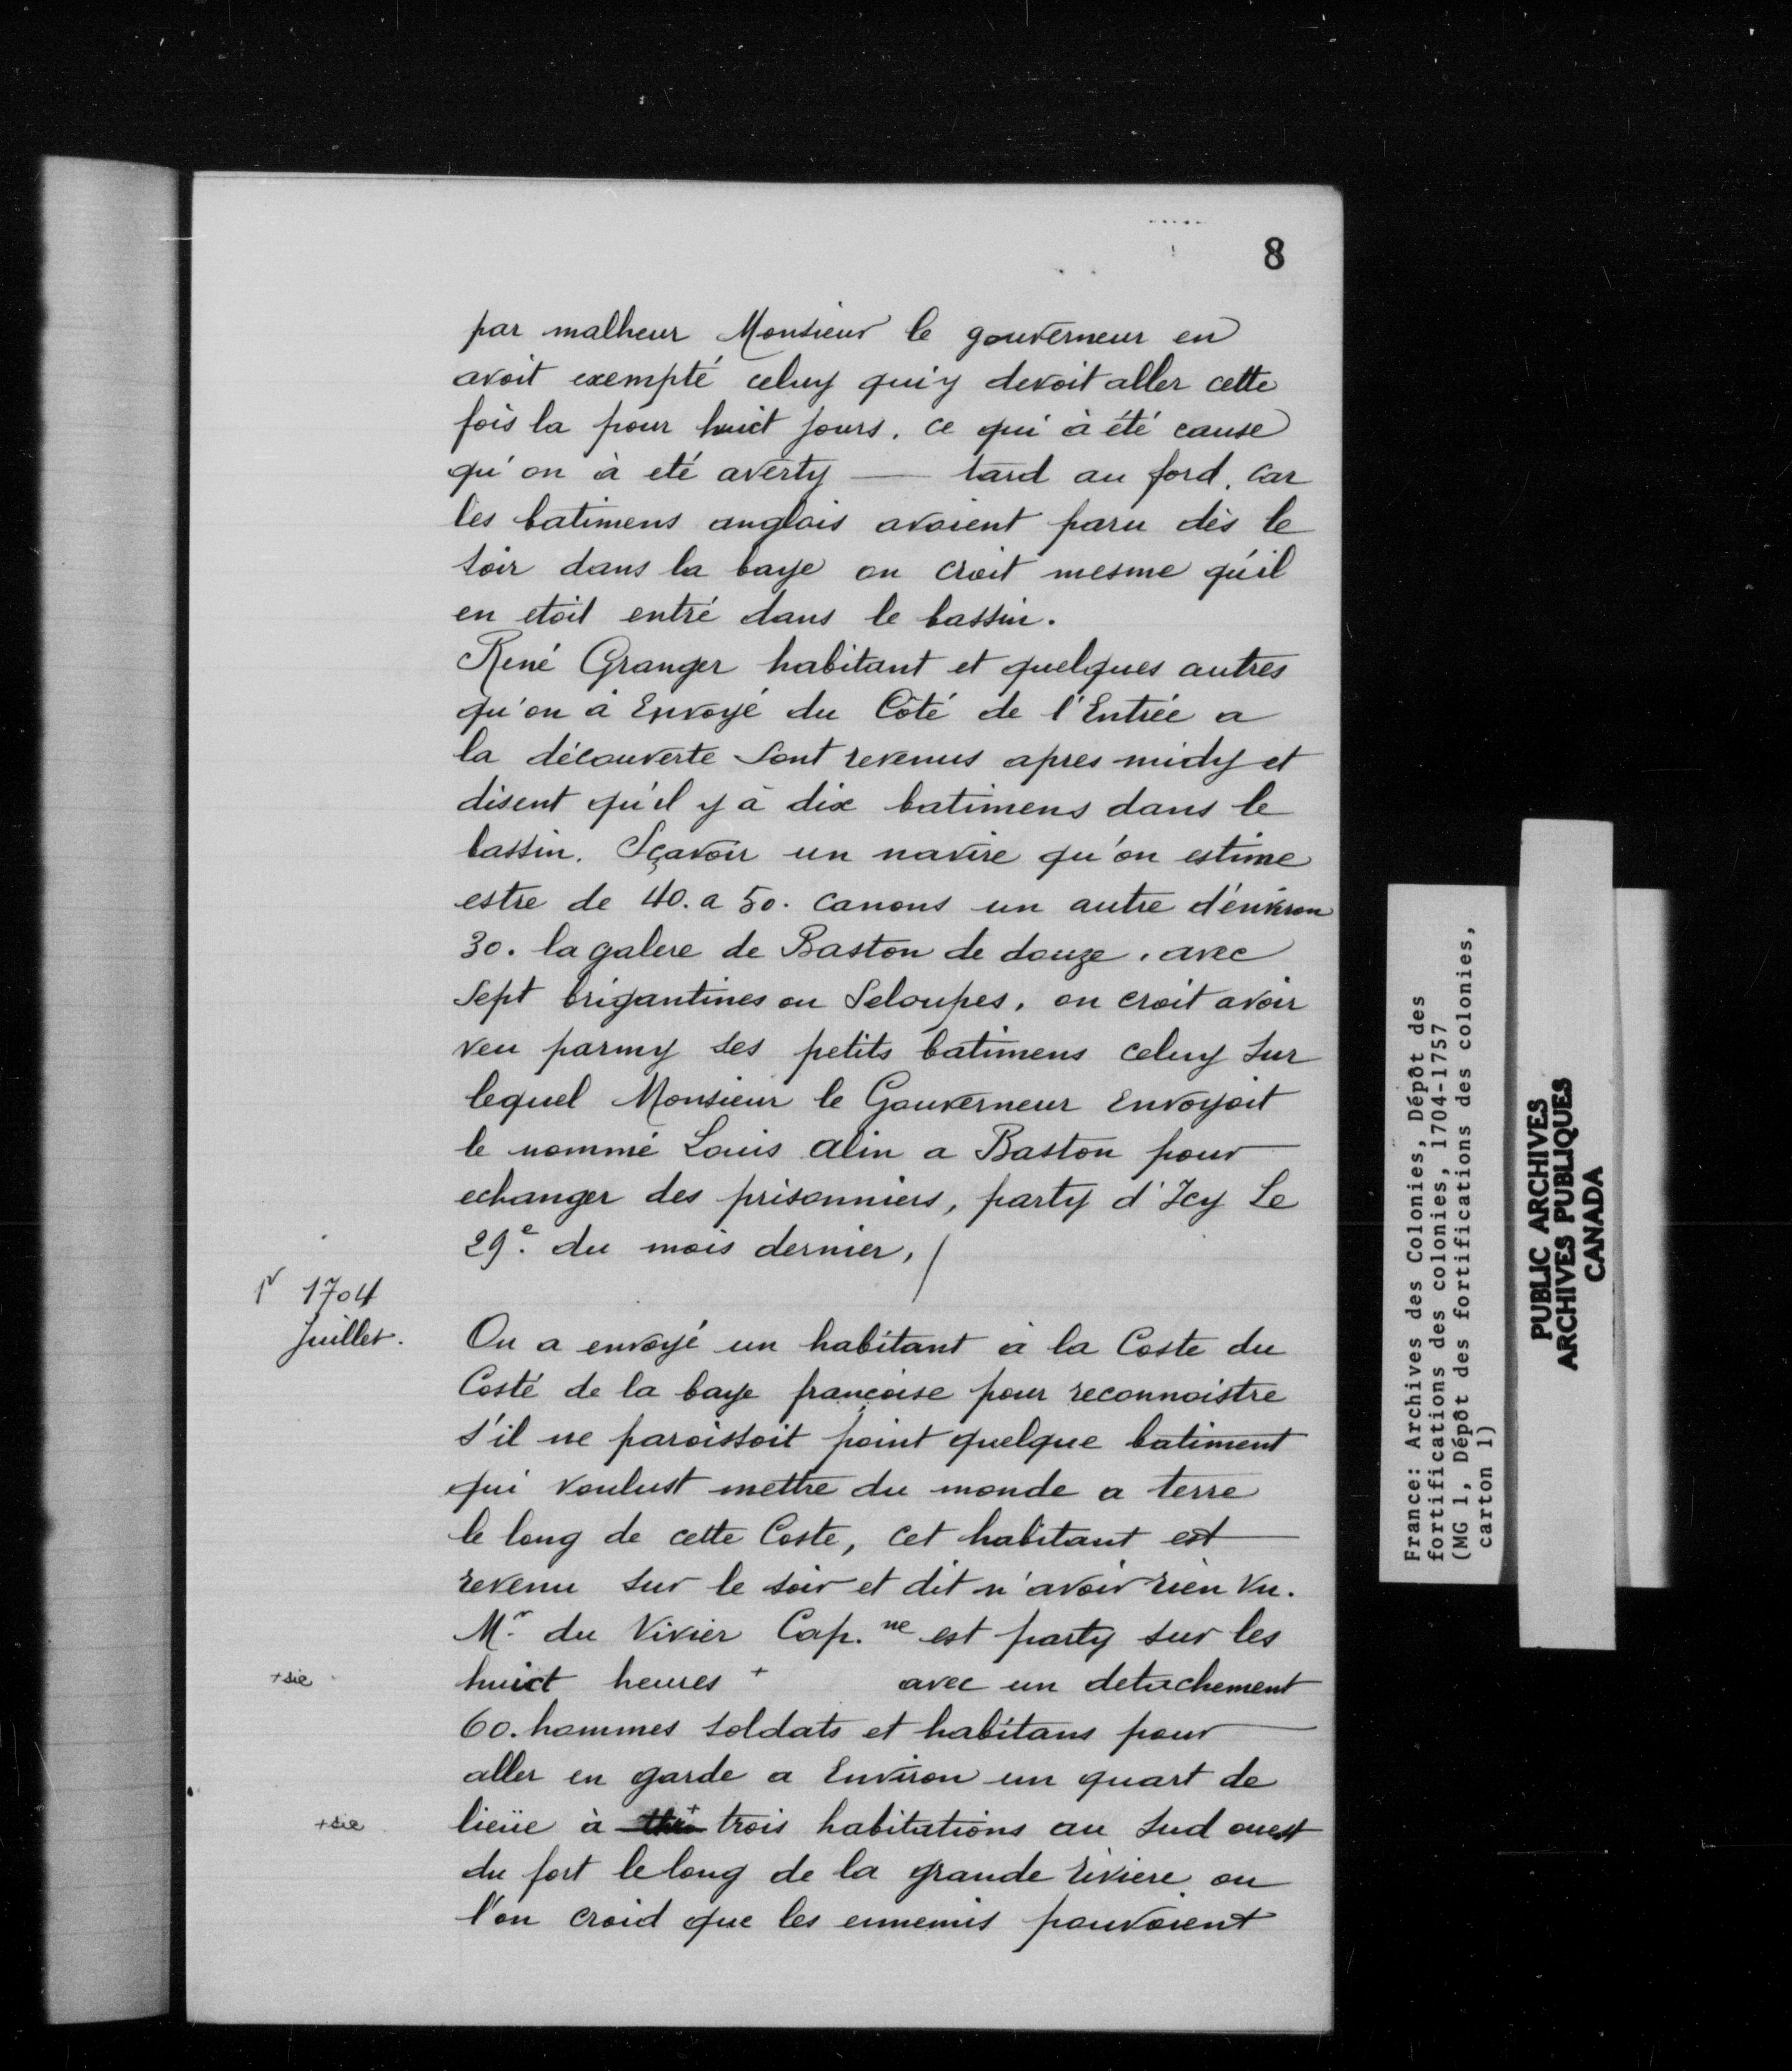 8
par malheur Monsieur le gouverneur en
avoit exempté celuy qui y devoit aller cette
fois la pour huict jours. ce qui à été cause
qu'on à eté averty — tard au ford. car
les batimens anglois avoient paru dès le
soir dans la baye on croit mesme qu'il
en etoit entré dans le bassin.
René Granger habitant et quelques autres
qu'on à Envoyé du Côté de l'Entrée a
la découverte sont revenus apres midy et
disent qu'il y à dix batimens dans le
bassin. Sçavoir un navire qu'on estime
estre de 40. a 50. canons un autre d'environ
30. la galere de Baston de douze. avec
Sept brigantines ou Seloupes. on croit avoir
veu parmy ses petits batimens celuy sur
lequel Monsieur le Gouverneur Envoyoit
le nommé Louis Alin a Baston pour
echanger des prisonniers, party d'Icy Le
29e. du mois dernier, /
1r 1704
Juillet.
On a envoyé un habitant à la Coste du
Costé de la baye françoise pour reconnoistre
s'il ne paroissoit point quelque batiment
qui voulust mettre du monde a terre
le long de cette Coste, cet habitant est
revenu sur le soir et dit n'avoir rien vu.
Mr. du Vivier Cap.ne est party sur les
+sic huict heures + avec un detachement
60. hommes soldats et habitans pour
aller en garde a Environ un quart de
+sic lieüe à + trois habitations au sud ouest
du fort le long de la grande riviere ou
l'on croid que les ennemis pouvoient
France: Archives des Colonies, Dépôt des
fortifications des colonies, 1704-1757
(MG 1, Dépôt des fortifications des colonies,
carton 1)
PUBLIC ARCHIVES
ARCHIVES PUBLIQUES
CANADA